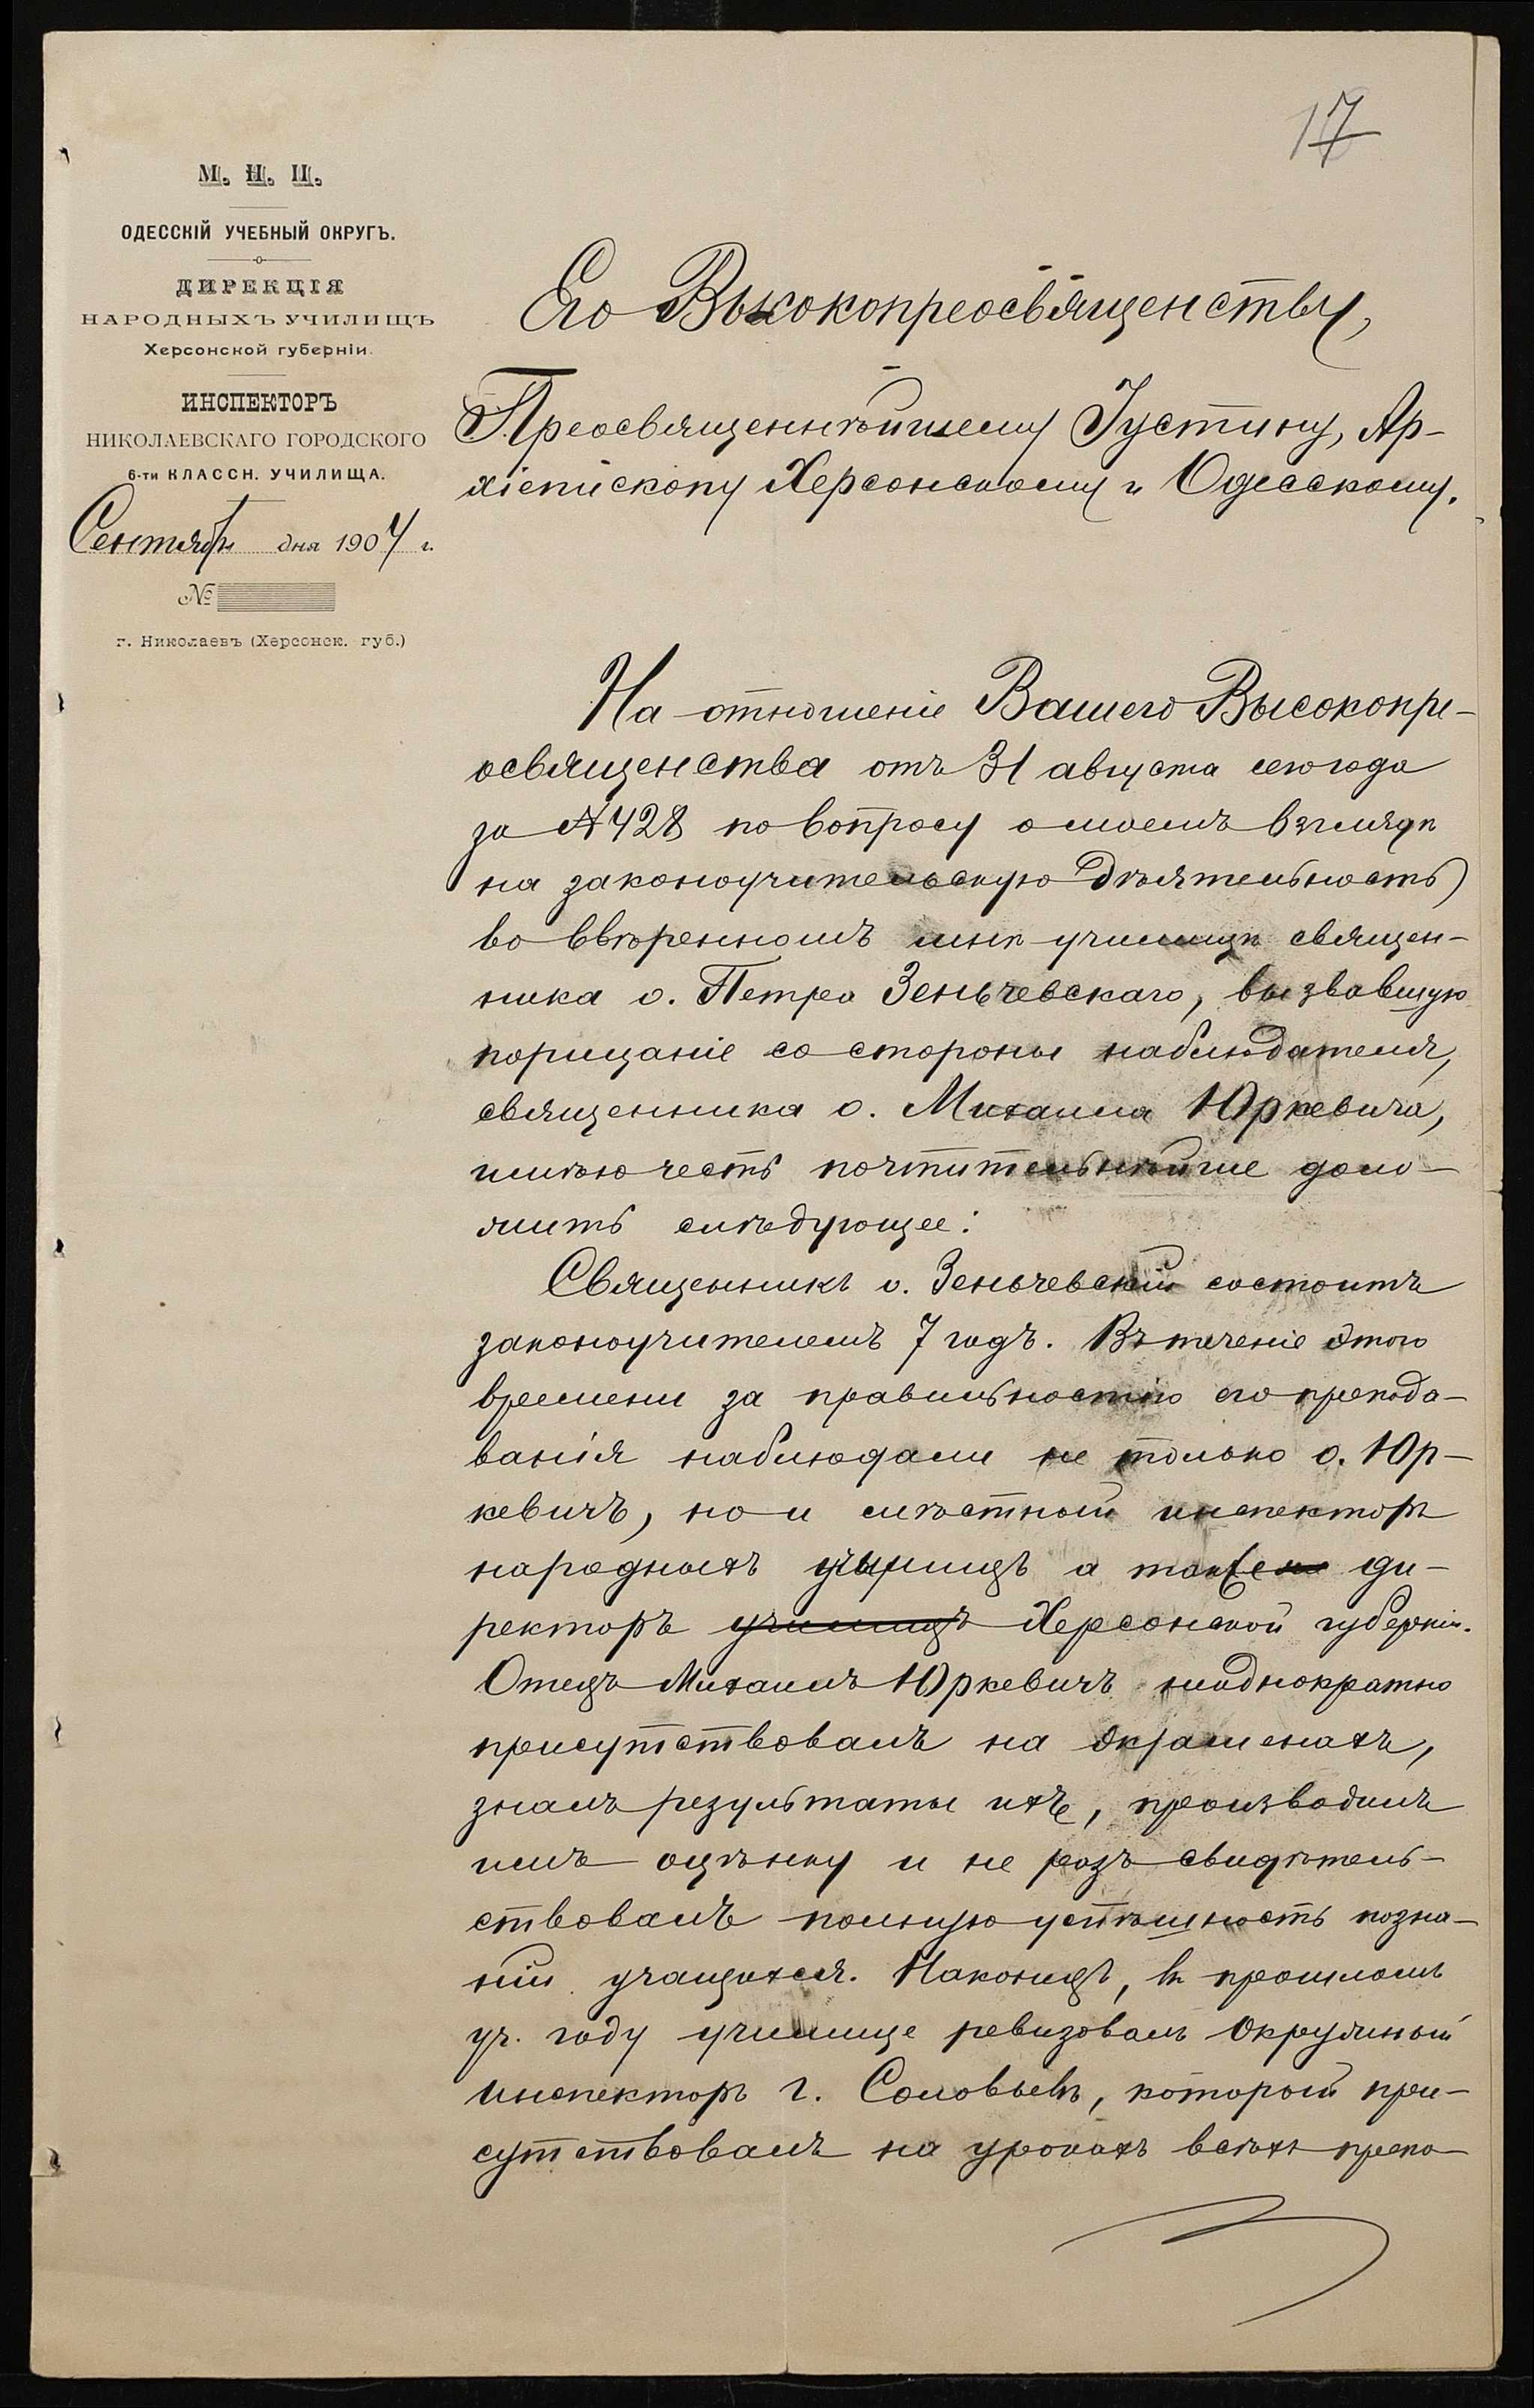 17
М. Н. П.
ОДЕССКІЙ УЧЕБНЫЙ ОКРУГЪ.
ДИРЕКЦІЯ
НАРОДНЫХЪ УЧИЛИЩЪ
Херсонской губерніи.
ИНСПЕКТОРЪ
НИКОЛАЕВСКАГО ГОРОДСКОГО
6-ти КЛАССН. УЧИЛИЩА.
Сентября дня 1904 г.
№
г. Николаевъ (Херсонск. губ.)
Его Высокопреосвященству,
Преосвященнѣйшему Іустину, Ар-
хіепископу Херсонскому и Одесскому.
На отношеніе Вашего Высокопре-
освященства отъ 31 августа сего года
за № 428 по вопросу о моемъ взглядѣ
на законоучительскую дѣятельность
во ввѣренномъ мнѣ училищѣ священ-
ника о. Петра Зеньчевскаго, вызвавшую
порицаніе со стороны наблюдателя,
священника о. Михаила Юркевича,
имѣю честь почтительнѣйше доло-
жить слѣдующее:
Священникъ о. Зеньчевскій состоитъ
законоучителемъ 7 годъ. Въ теченіе этого
времени за правильностью его препода-
ванія наблюдали не только о. Юр-
кевичъ, но и мѣстный инспекторъ
народныхъ училищъ а также ди-
ректоръ училищъ Херсонской губерніи.
Отецъ Михаилъ Юркевичъ неоднократно
присутствовалъ на экзаменахъ,
зналъ результаты ихъ, производилъ
имъ оцѣнку и не разъ свидѣтель-
ствовалъ полную успѣшность позна-
ній учащихся. Наконецъ, въ прошломъ
уч. году училище ревизовалъ Окружный
Инспекторъ г. Соловьевъ, который при-
сутствовалъ на урокахъ всѣхъ препо-